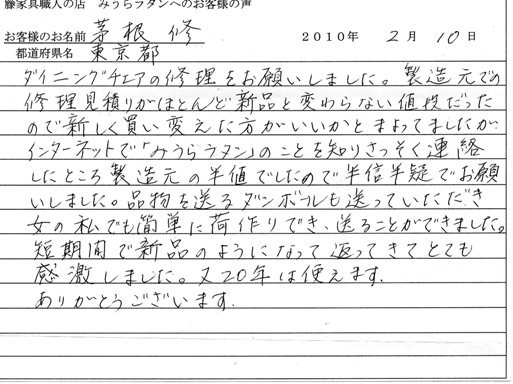 藤家具職人の店 みうらラタンへのお客様の声
お客様のお名前 茅根 修 2010年 2月 10日
都道府県名 東京都
ダイニングチェアの修理をお願いしました。製造元での
修理見積りがほとんど新品と変わらない値段だった
ので新しく買い変えた方がいいかとまよってましたが
インターネットで「みうらラタン」のことを知りさっそく連絡
したところ製造元の半値でしたので半信半疑でお願
いしました。品物を送るダンボールも送っていただき
女の私でも簡単に荷作りでき、送ることができました。
短期間で新品のようになって返ってきてとても
感激しました。又20年は使えます。
ありがとうございます。